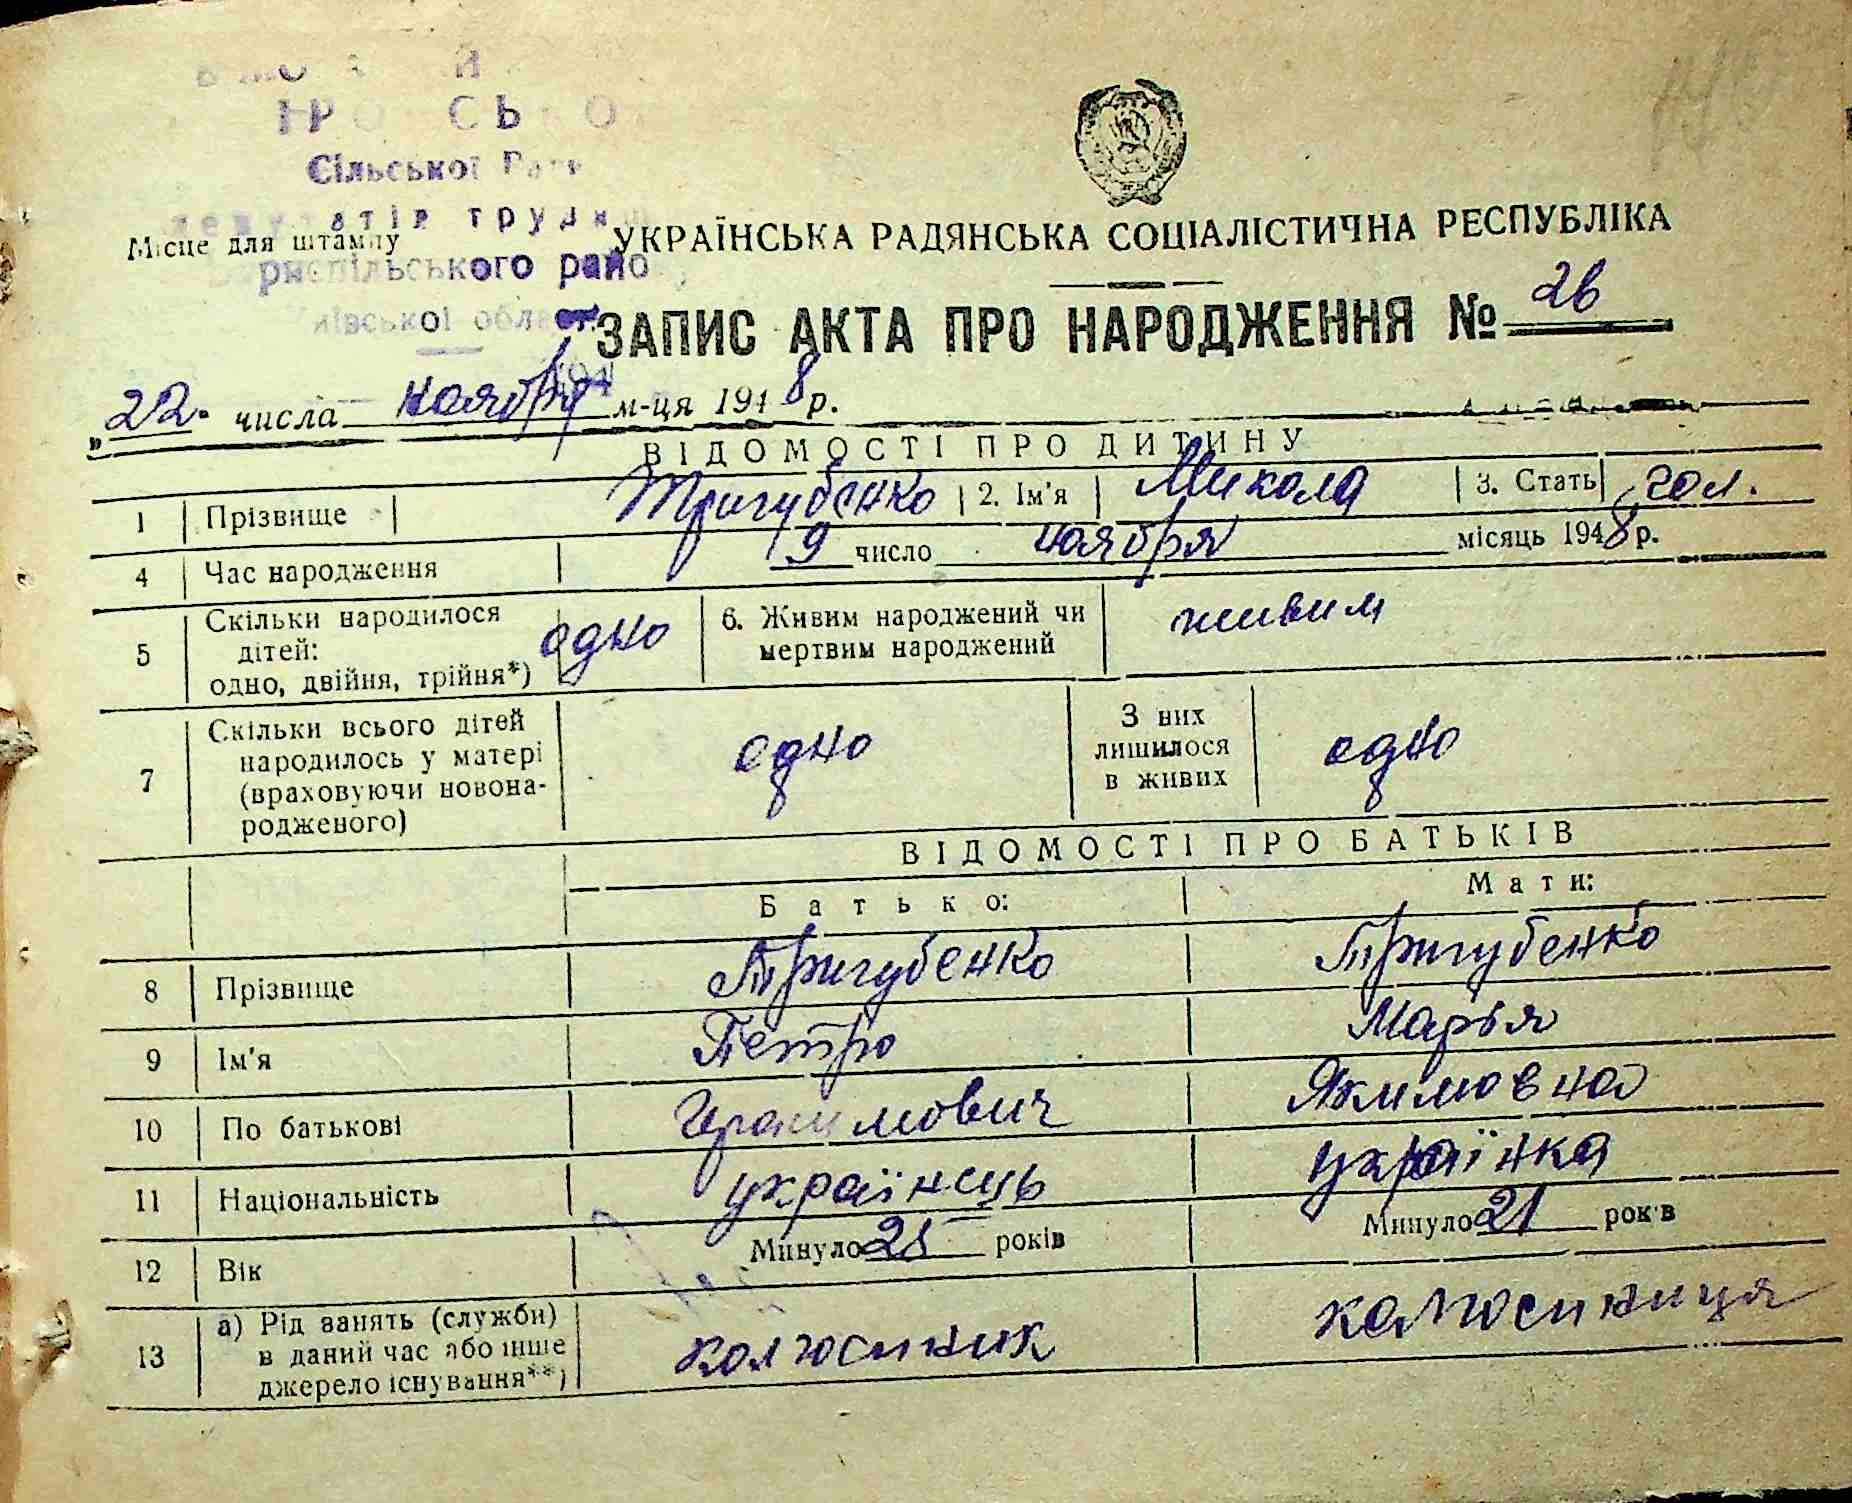 Сільської
трудя
Місце для штампу УКРАЇНСЬКА РАДЯНСЬКА СОЦІАЛІСТИЧНА РЕСПУБЛІКА
риспільського райо
ЗАПИС АКТА ПРО НАРОДЖЕННЯ № 26
„22. числа ноября м-ця 1948 р.
ВІДОМОСТІ ПРО ДИТИНУ
1 Прізвище Тригубенко 2. Ім'я Микола 3. Стать чол.
4 Час народження 9 число ноября місяць 1948 р.
5 Скільки народилося дітей: одно, двійня, трійня*) одно 6. Живим народжений чи мертвим народжений живим
7 Скільки всього дітей народилось у матері (враховуючи новонародженого) одно З них лишилося в живих одно
ВІДОМОСТІ ПРО БАТЬКІВ
Батько: Мати:
8 Прізвище Тригубенко Тригубенко
9 Ім'я Петро Марья
10 По батькові Герасимович Якимовна
11 Національність українець українка
12 Вік Минуло 25 років Минуло 21 років
13 а) Рід занять (служби) в даний час або інше джерело існування**) колгоспник колгоспниця